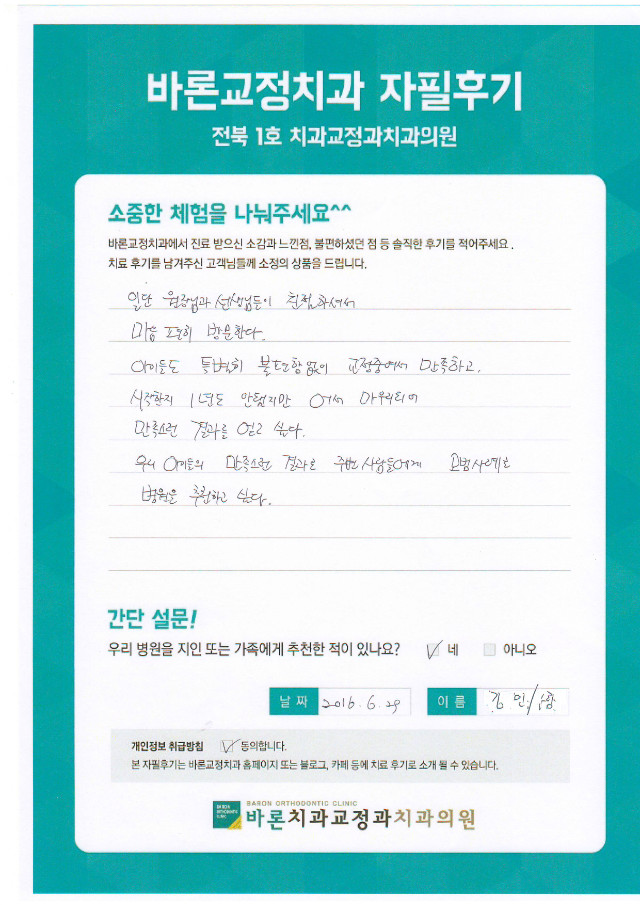 바론교정치과 자필후기
전북 1호 치과교정과치과의원
소중한 체험을 나눠주세요^^
바론교정치과에서 진료 받으신 소감과 느낀점, 불편하셨던 점 등 솔직한 후기를 적어주세요.
치료 후기를 남겨주신 고객님들께 소정의 상품을 드립니다.
일단 원장님과 선생님들이 친절하셔서
마음 편히 방문한다.
아이들도 특별히 불편함 없이 교정중에서 만족하고,
시작한지 1년도 안됐지만 어서 마무리되어
만족스런 결과를 얻고 싶다.
우리 아이들의 만족스런 결과로 주변 사람들에게 모범사례로
병원을 추천하고 싶다.
간단 설문!
우리 병원을 지인 또는 가족에게 추천한 적이 있나요? 네 아니오
날짜 2016.6.29 이름 김 인
개인정보 취급방침 동의합니다.
본 자필후기는 바론교정치과 홈페이지 또는 블로그, 카페 등에 치료 후기로 소개 될 수 있습니다.
BARON ORTHODONTIC CLINIC
바론치과교정과치과의원